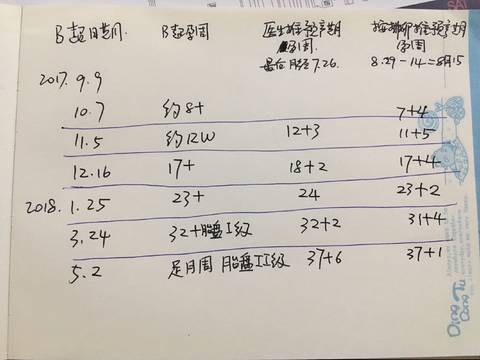 B超日期 B超孕周 医生推预产期孕周 按排卵推预产期孕周
最后月经7.26. 8.29-14=8月15
2017.9.9
10.7 约8+ 7+4
11.5 约12W 12+3 11+5
12.16 17+ 18+2 17+4
2018.1.25 23+ 24 23+2
3.24 32+胎盘I级 32+2 31+4
5.2 足月周 胎盘II级 37+6 37+1
Ding Tu
Dong Tu